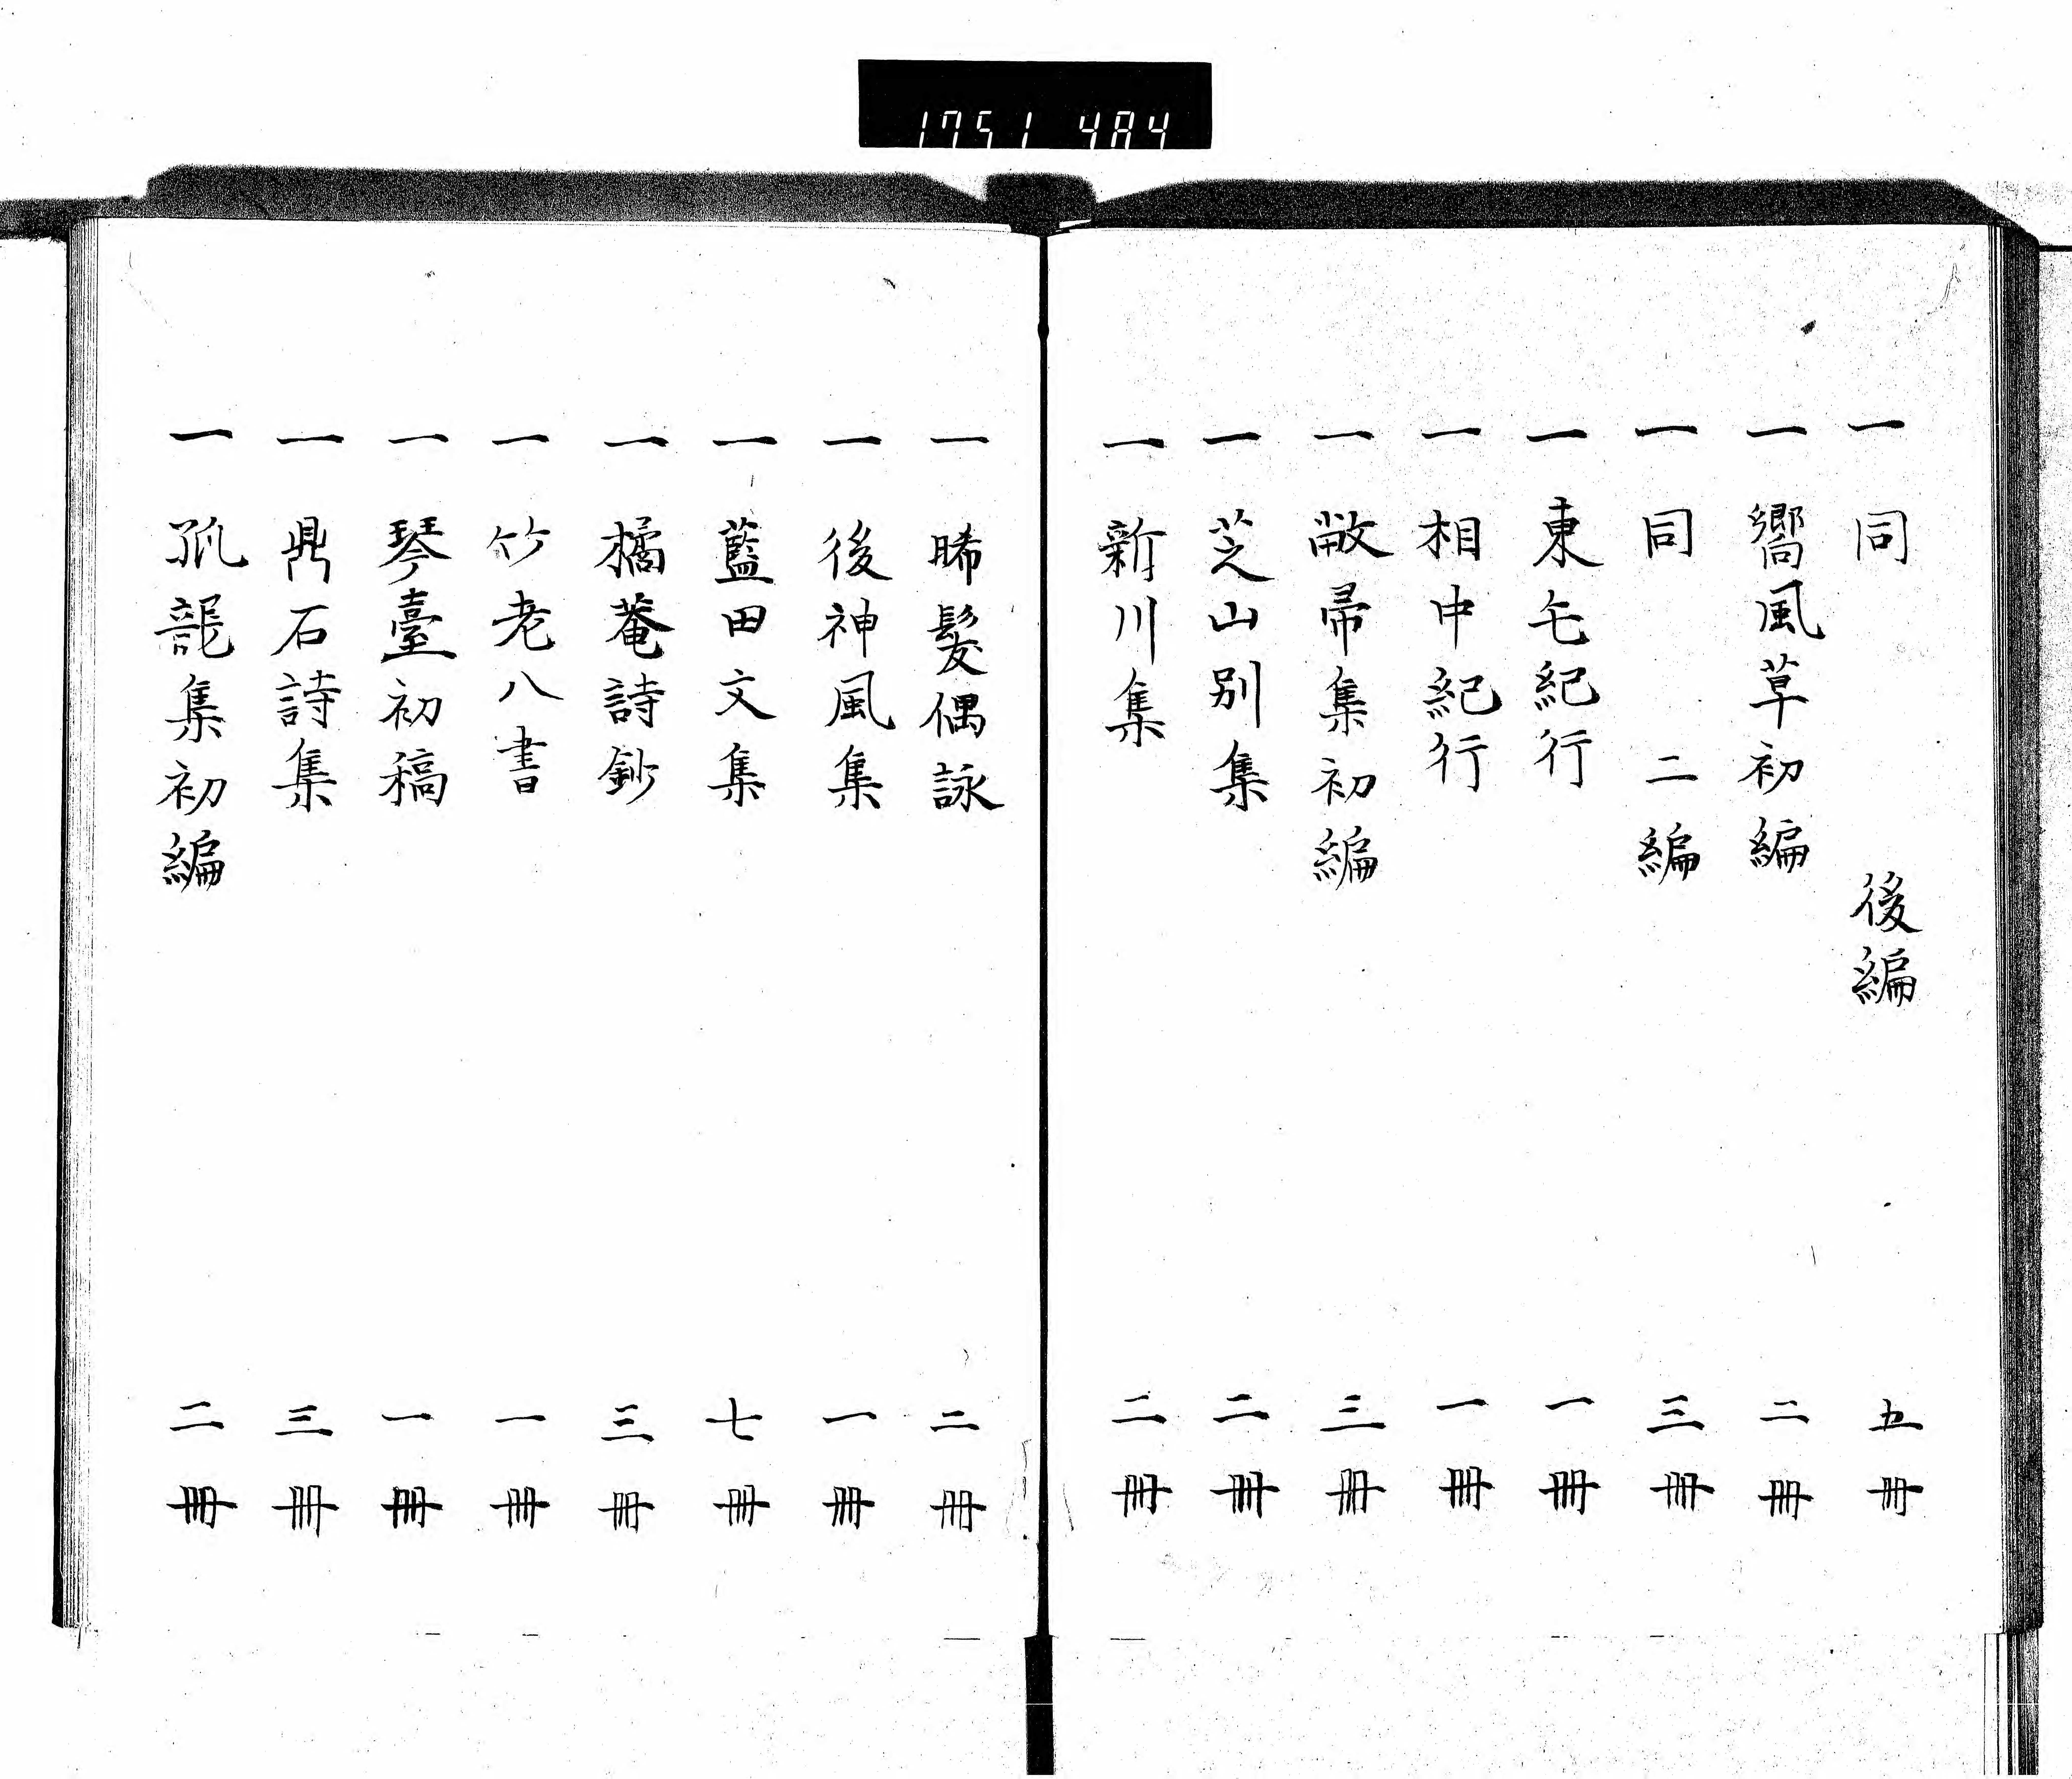 1751 484
一 同 後編 五冊
一 嚮風草初編 二冊
一 同 二編 三冊
一 東毛紀行 一冊
一 相中紀行 一冊
一 敝帚集初編 三冊
一 芝山別集 二冊
一 新川集 二冊
一 晞髮偶詠 二冊
一 後神風集 一冊
一 藍田文集 七冊
一 橘菴詩鈔 三冊
一 竹老八書 一冊
一 琴臺初稿 一冊
一 鼎石詩集 三冊
一 集初編 二冊